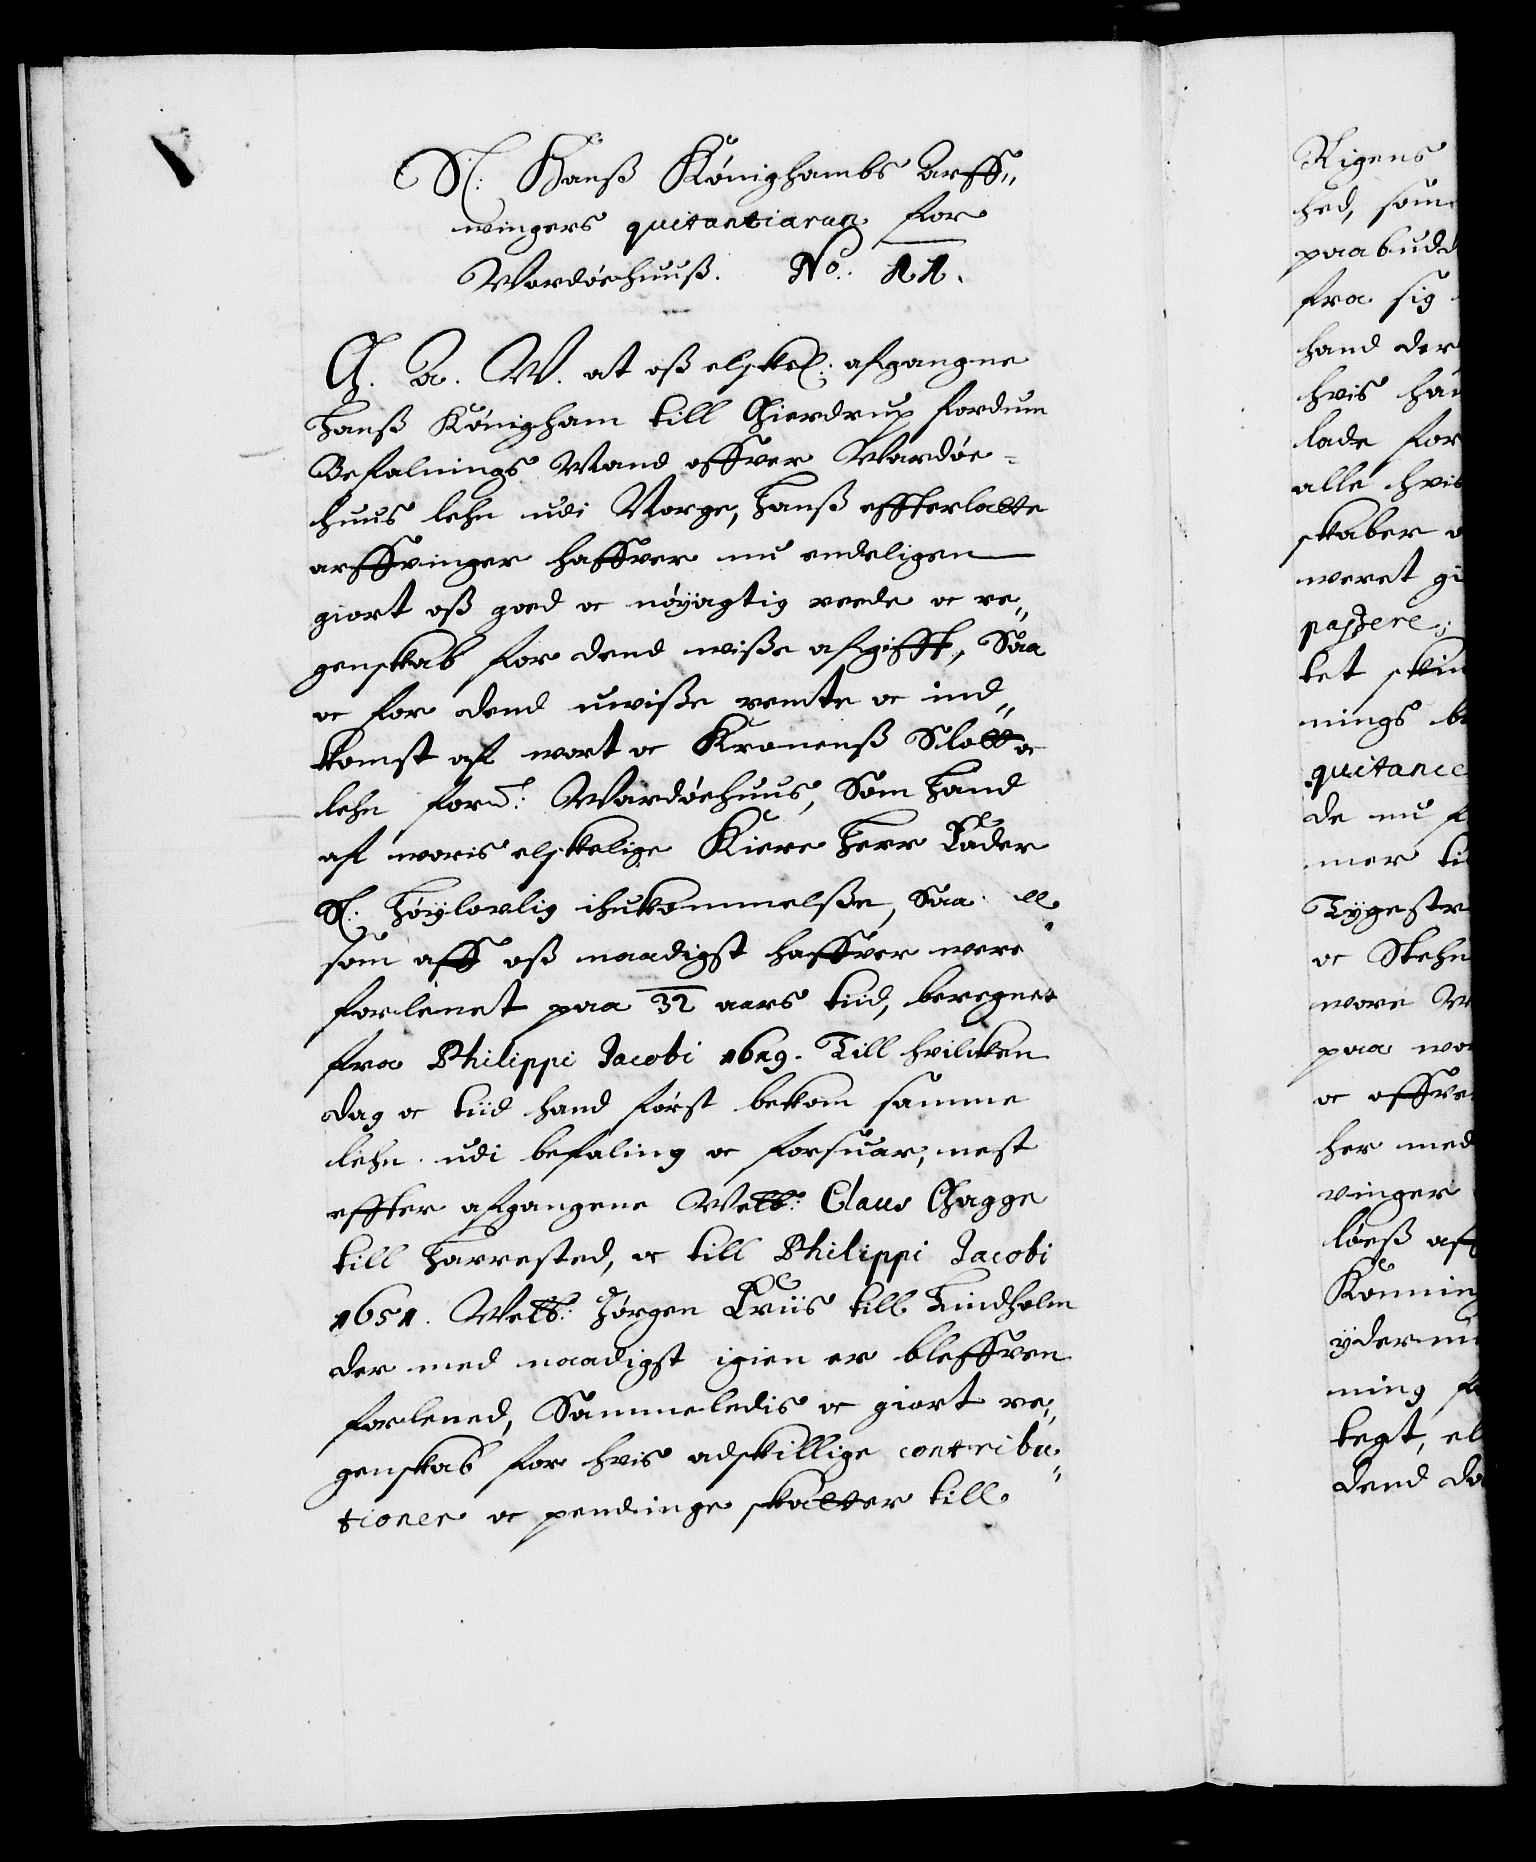 Sl: Hanß Kønighambs Arff„
wingers quitantiarum for
Wardøehuuß. No: 11.
G. A. W. at oß elskel: afgangne
Hanß Kønigham till Gierdrup fordum
Befalnings Mand offver Wardøe-
huus lehn udi Norge, Hanß effterlatte
arffvinger haffver nu endeligen
giort oß goed oc nøyagtig reede oc re„
genskab for dend wiße afgifft, Saa
oc for dend uwiße rente oc ind„
komst aff wort oc Kronenß Slott oc
lehn ford: Wardøehuus, Som Hand
aff woris elskelige Kiere Herr Fader
Sl: Høylovlig ihukommelsße, Saa ell„
som aff oß naadigst haffver were
forlënet paa 32 aars tiid, beregnet
fra Philippi Jacobi 1619. Till hvilcken
dag oc tiid hand først bekom samme
lehn udi befaling oc forsuar, nest
effter afgangene Welb: Claus Gagge
till Harrested, oc till Philippi Jacobi
1651. Welb: Jørgen Friis till Lindholm
der med naadigst igien er bleffven
forlened, Sammeledis oc giort re„
genskab for hvis adskillige contribu„
tioner oc pendinge skatter till
Rigens
hed, som
paabudd
fra sig
hand der
hvis han
lade for
alle hvis
skaber o
weret gi
passere;
ket skin
nings be
quitance
de nu f
mer til
Tygestr
oc Stehn
wore M
paa wor
oc offver
her med
vinger
løeß aff
Konning
yderm
ning f
tegt, el
dend da